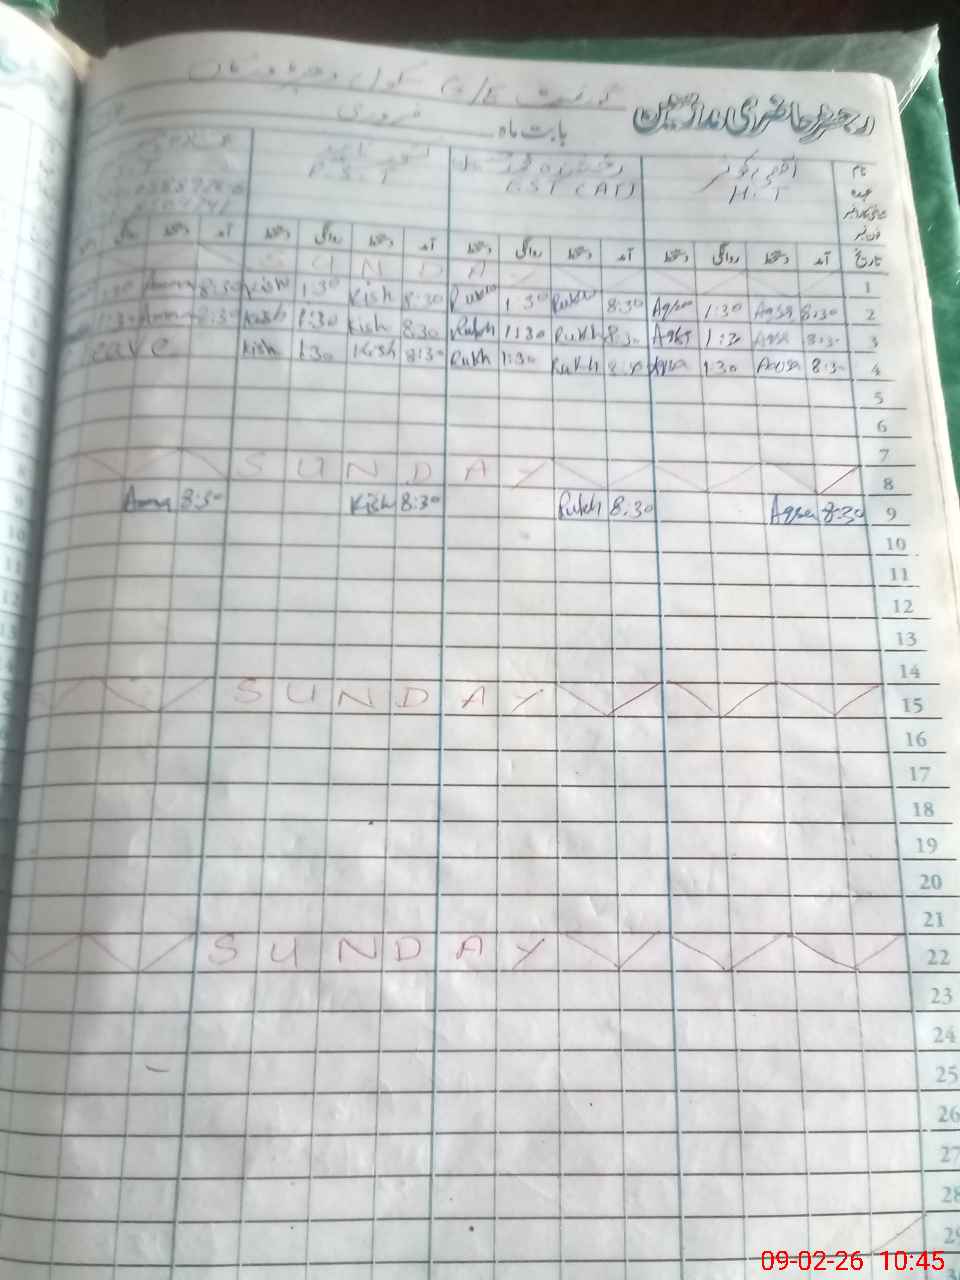 رجسٹر حاضری مدارسین
گورنمنٹ G/E سکول
بابت ماہ فروری
نام
عہدہ
H.T
EST (AT)
P.S.T
تاریخ آمد دستخط روانگی دستخط آمد دستخط روانگی دستخط آمد دستخط روانگی دستخط آمد دستخط روانگی
1 S U N D A Y
2 8:30 Aqsa 1:30 Aqsa 8:30 Rukh 1:30 Rukh 8:30 Kish 1:30 Kish 8:30 Amna
3 8:30 Aqsa 1:30 Aqsa 8:30 Rukh 1:30 Rukh 8:30 Kish 1:30 Kish 8:30 Amna
4 8:30 Aqsa 1:30 Aqsa 8:30 Rukh 1:30 Rukh 8:30 Kish 1:30 Kish Leave
5
6
7
8 S U N D A Y
9 8:30 Aqsa 8:30 Rukh 8:30 Kish 8:30 Amna
10
11
12
13
14
15 S U N D A Y
16
17
18
19
20
21
22 S U N D A Y
23
24
25
26
27
28
29
09-02-26 10:45